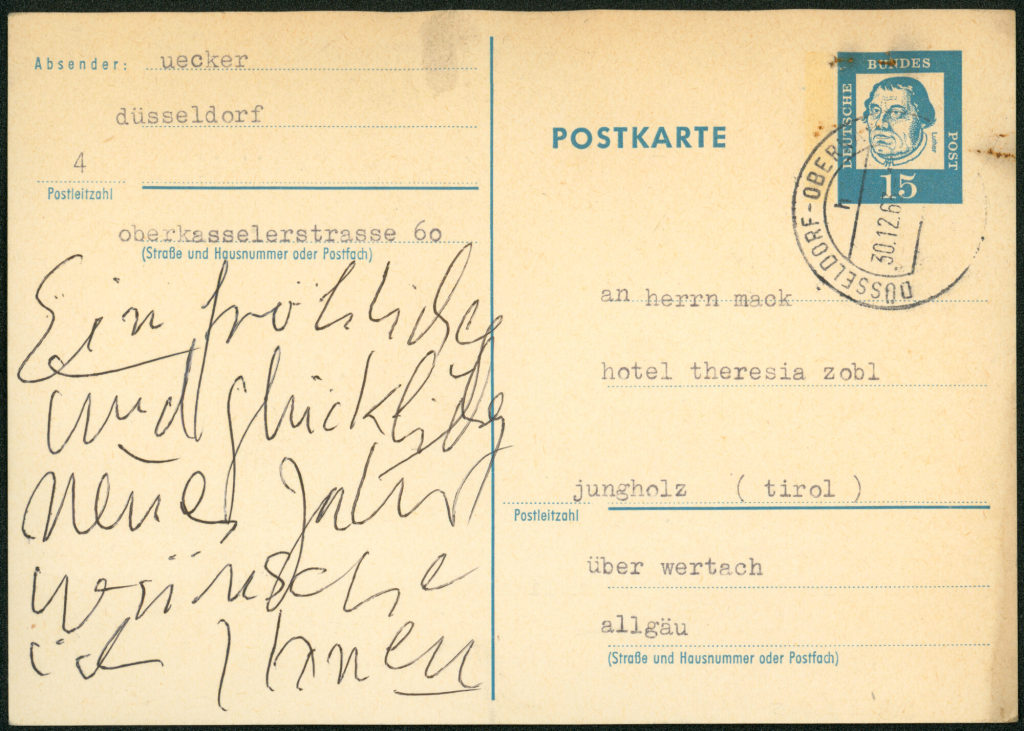 Absender: uecker
düsseldorf
4
Postleitzahl
oberkasselerstrasse 60
(Straße und Hausnummer oder Postfach)
Ein fröhliches
und glückliches
neues Jahr
wünsche
ich Ihnen
POSTKARTE
DEUTSCHE BUNDES POST
Luther
15
DÜSSELDORF-OBER
h
30.12.6
an herrn mack
hotel theresia zobl
jungholz ( tirol )
Postleitzahl
über wertach
allgäu
(Straße und Hausnummer oder Postfach)